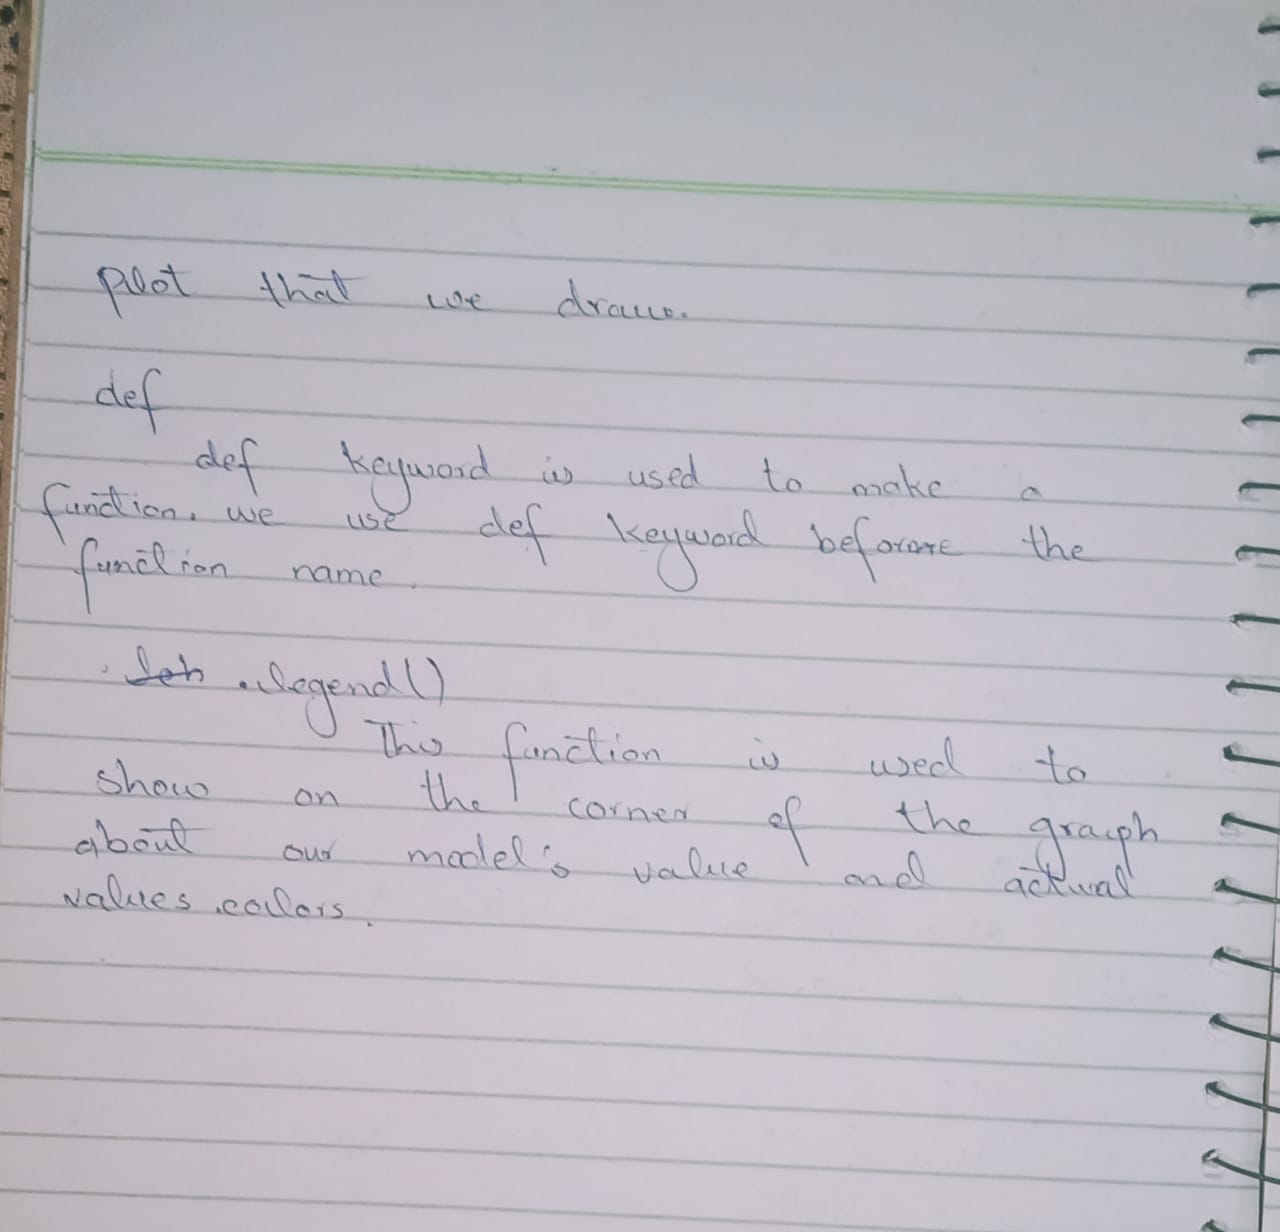 plot that we draw.
def
def keyword is used to make a
function. we use def keyword beforore the
function name.
.legend()
This function is used to
show on the corner of the graph
about our model's value and actual
values colors.